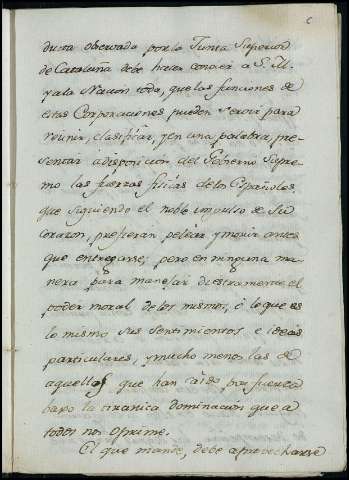 ducta observada por la Junta Superior
de Cataluña debe hacer conocer a S. M.
y a la Nacion toda, que las funciones de
estas Corporaciones pueden servir para
reunir, clasificar, y en una palabra, pre-
sentar a disposicion del Gobierno Supre-
mo las fuerzas fisicas de los Españoles
que siguiendo el noble impulso de su
corazon, prefieran pelear y morir antes
que entregarse; pero en ninguna ma-
nera para manejar diestramente el
poder moral de los mismos, ó lo que es
lo mismo sus sentimientos e ideas
particulares, y mucho menos las de
aquellos que han caido por fuerza
baxo la tiranica dominacion que a
todos nos oprime.
El que mande, debe aprovecharse